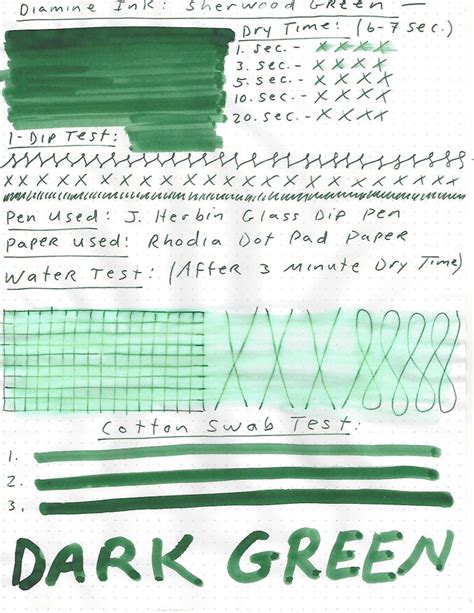 Diamine Ink: Sherwood Green —
Dry Time: (6-7 Sec.)
1. sec. - X X X X
3. sec. - X X X X
5. sec. - X X X X
10. sec. - X X X X
20. sec. - X X X X
1-Dip Test:
X X X X X X X X X X X X X X X X X X
Pen Used: J. Herbin Glass Dip Pen
Paper Used: Rhodia Dot Pad Paper
Water Test: (After 3 Minute Dry Time)
Cotton Swab Test:
1.
2.
3.
DARK GREEN